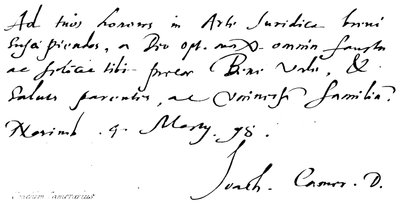 Ad tuos honores in Arte Iuridica
suscipiendos, a Deo opt. max. omnia fausta
ac felicia tibi precor Bene Vale, &
Saluta parentes, ac familia
Norimb. 9. Marty. 98.
Ioach. Camer. D.